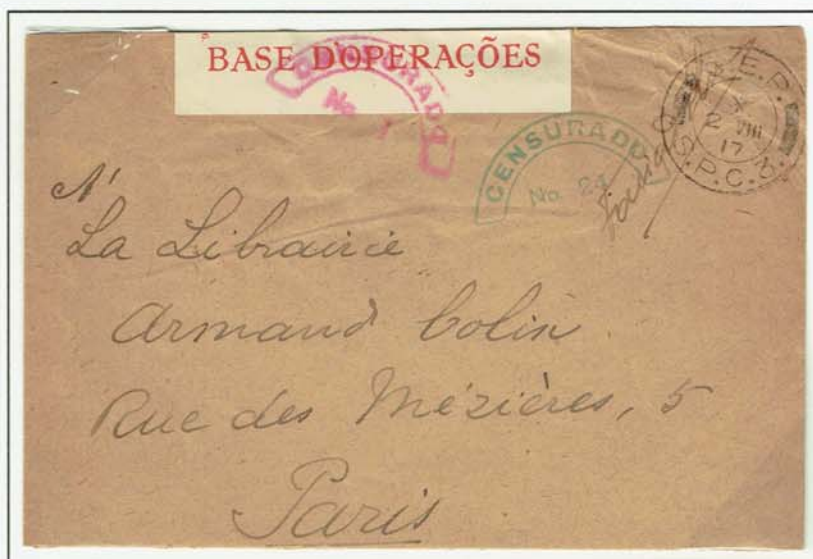 BASE D'OPERAÇÕES
CENSURADO
No 1
CENSURADO
No 24
E.P.
2 VIII
17
S.P.C.
A'
La Librairie
Armand Colin
Rue des Mézières, 5
Paris